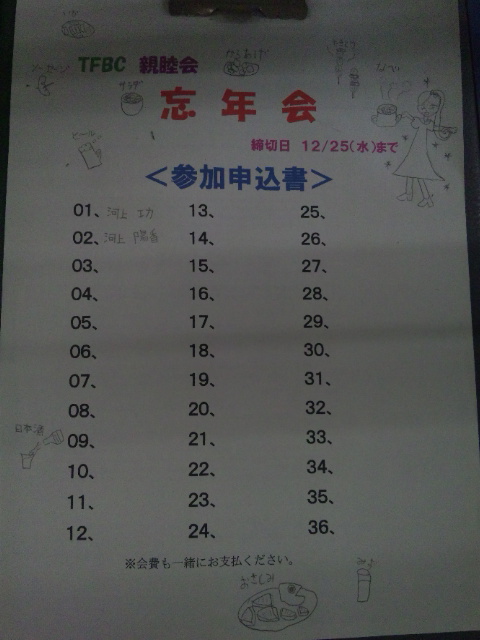 TFBC 親睦会
からあげ
サラダ
なべ
忘年会
ビール
締切日 12/25(水)まで
<参加申込書>
01、河上 功 13、 25、
02、河上 陽香 14、 26、
03、 15、 27、
04、 16、 28、
05、 17、 29、
06、 18、 30、
07、 19、 31、
08、 20、 32、
日本酒
09、 21、 33、
10、 22、 34、
11、 23、 35、
12、 24、 36、
※会費も一緒にお支払ください。
おさしみ